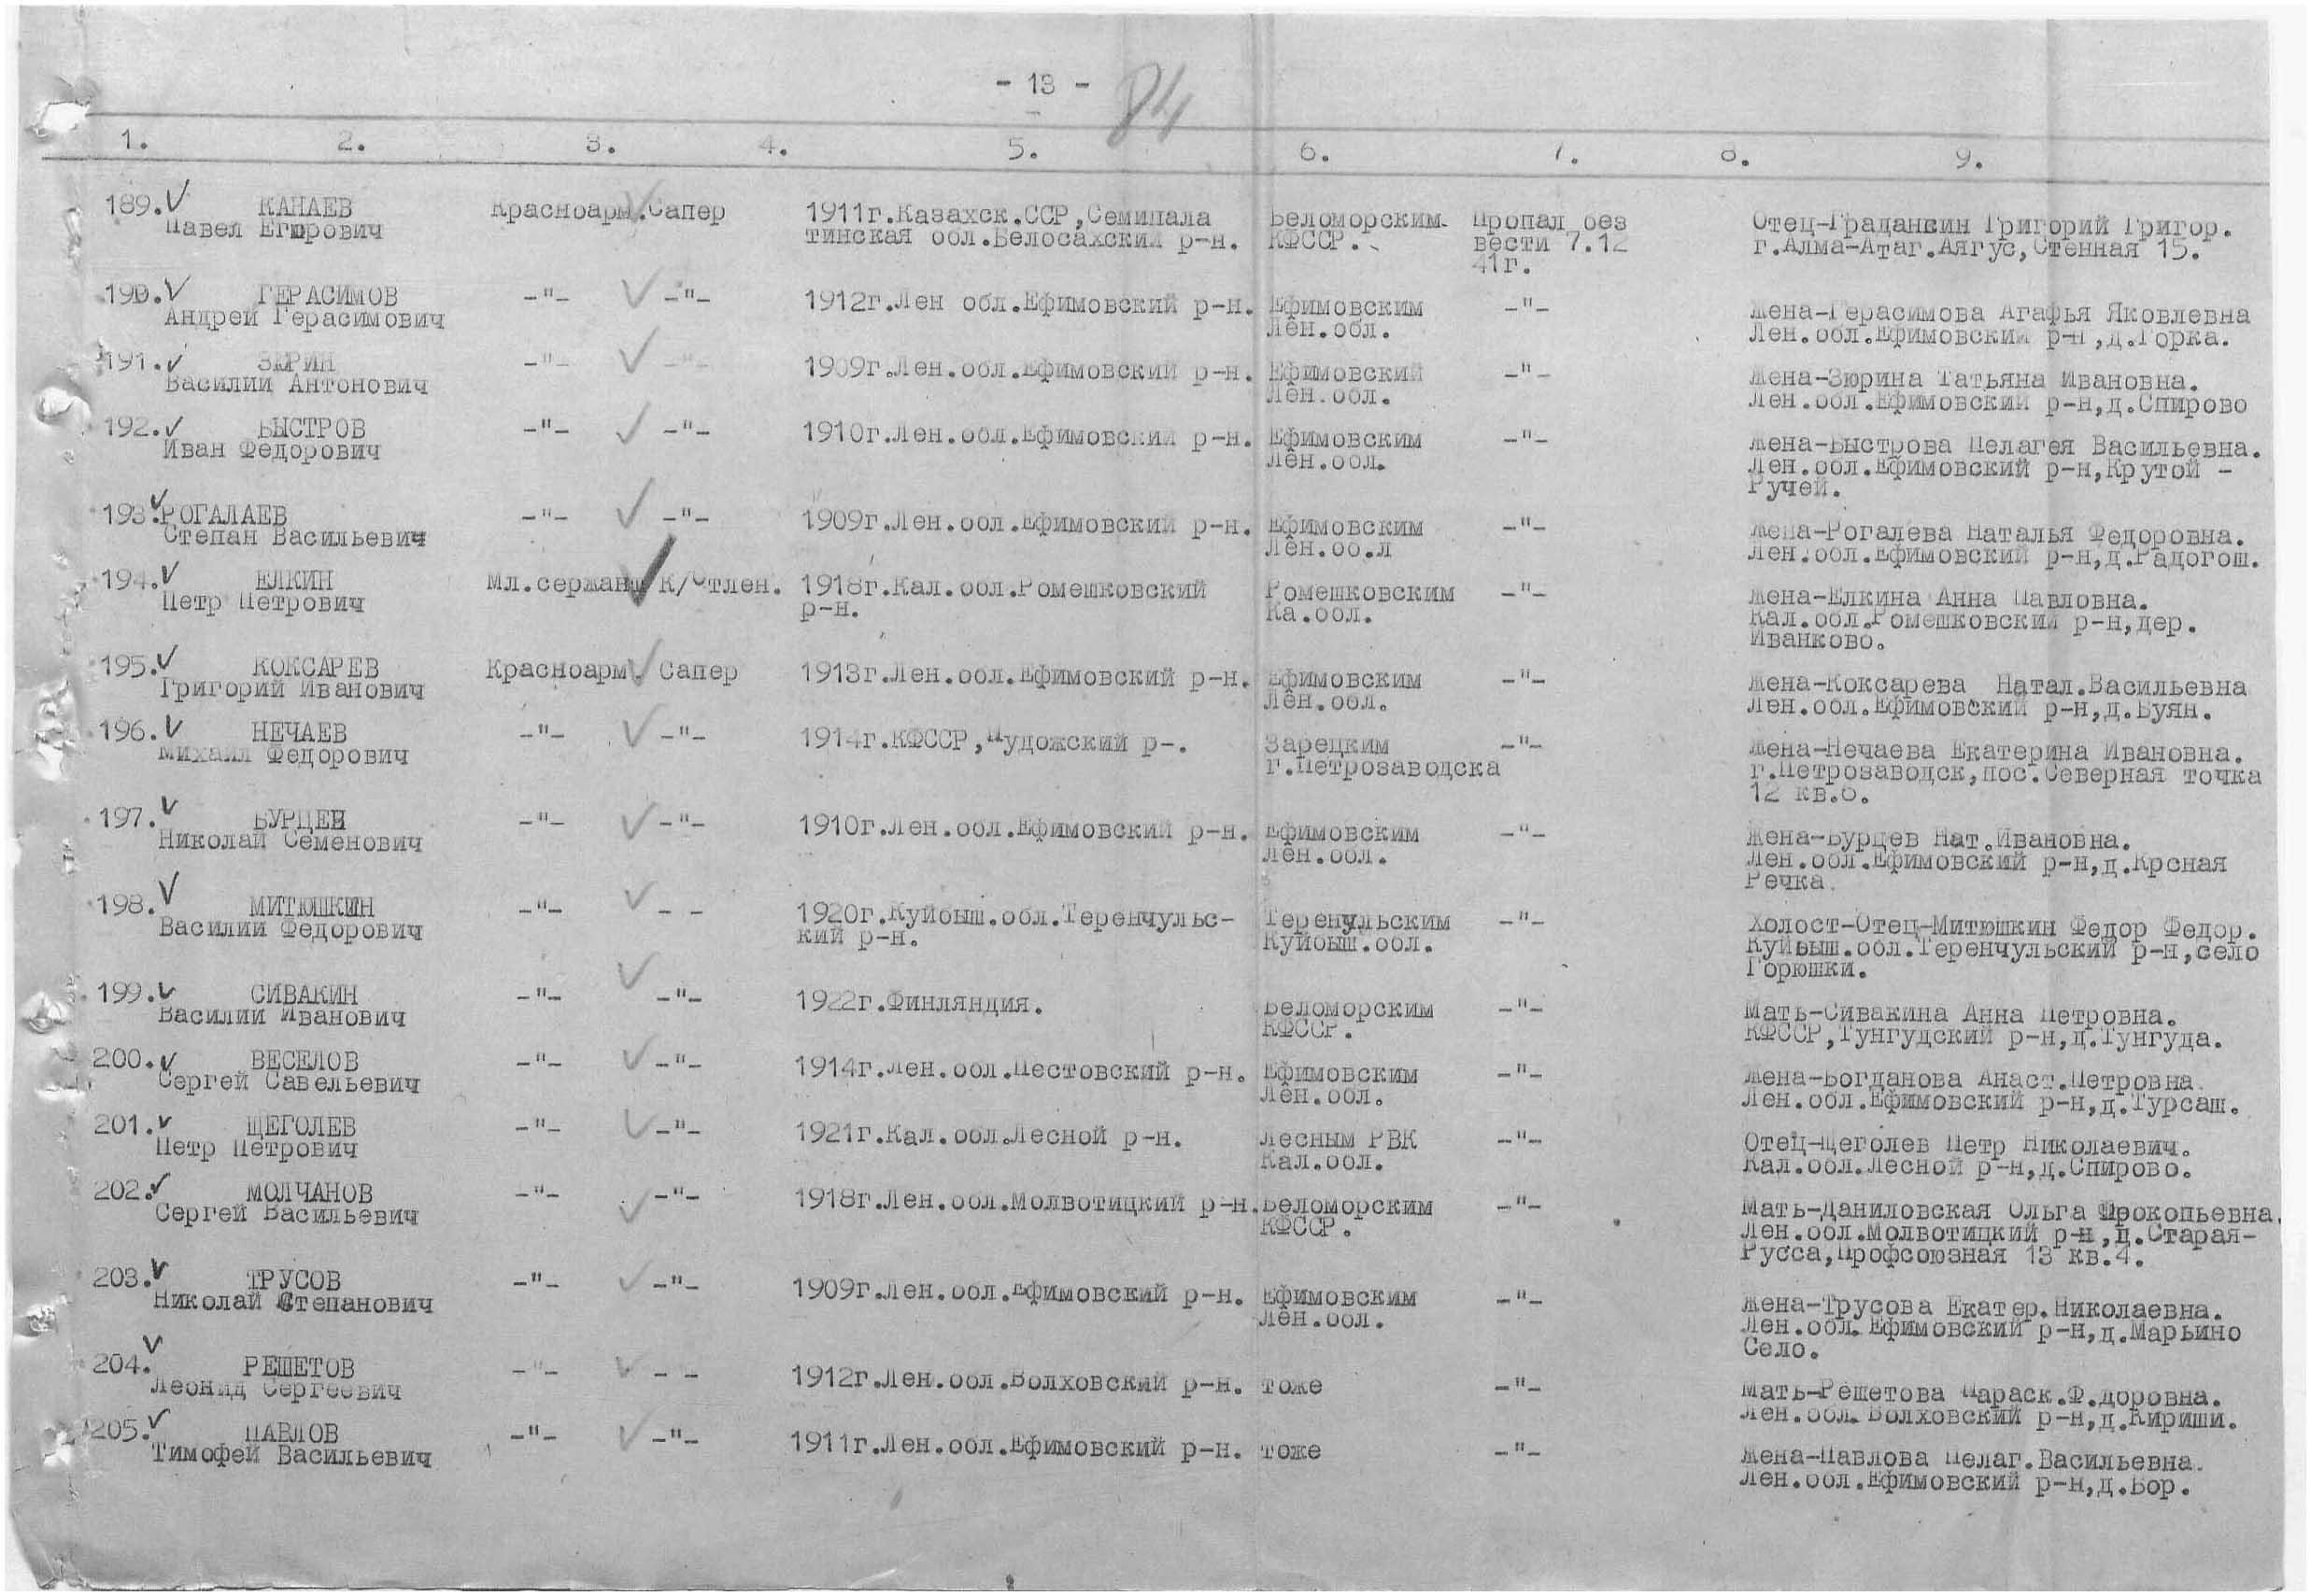 - 13 -
84
1. 2. 3. 4. 5. 6. 7. 8. 9.
189. КАНАЕВ Красноарм. Сапер 1911г.Казахск.ССР,Семипала Беломорским. Пропал без Отец-Граданкин Григорий Григор.
Павел Егорович тинская обл.Белосахский р-н. КФССР. вести 7.12 г.Алма-Атаг.Аягус,Стенная 15.
41г.
190. ГЕРАСИМОВ -"- -"- 1912г.Лен обл.Ефимовский р-н. Ефимовским -"- Жена-Герасимова Агафья Яковлевна
Андрей Герасимович Лен.обл. Лен.обл.Ефимовский р-н,д.Горка.
191. -"- -"- 1909г.Лен.обл.Ефимовский р-н. Ефимовский -"- Жена-Зюрина Татьяна Ивановна.
Василий Антонович Лен.обл. Лен.обл.Ефимовский р-н,д.Спирово
192. БЫСТРОВ -"- -"- 1910г.Лен.обл.Ефимовский р-н. Ефимовским -"- Жена-Быстрова Пелагея Васильевна.
Иван Федорович Лен.обл. Лен.обл.Ефимовский р-н,Крутой -
Ручей.
193. РОГАЛАЕВ -"- -"- 1909г.Лен.обл.Ефимовский р-н. Ефимовским -"- Жена-Рогалева Наталья Федоровна.
Степан Васильевич Лен.об.л Лен.обл.Ефимовский р-н,д.Радогош.
194. ЕЛКИН Мл.сержант К/Отлен. 1918г.Кал.обл.Ромешковский Ромешковским -"- Жена-Елкина Анна Павловна.
Петр Петрович р-н. Ка.обл. Кал.обл.Ромешковский р-н,дер.
Иванково.
195. КОКСАРЕВ Красноарм. Сапер 1913г.Лен.обл.Ефимовский р-н. Ефимовским -"- Жена-Коксарева Натал.Васильевна
Григорий Иванович Лен.обл. Лен.обл.Ефимовский р-н,д.Буян.
196. НЕЧАЕВ -"- -"- 1914г.КФССР,Пудожский р-. Зарецким -"- Жена-Нечаева Екатерина Ивановна.
Михаил Федорович г.Петрозаводска г.Петрозаводск,пос.Северная точка
12 кв.6.
197. БУРЦЕВ -"- -"- 1910г.Лен.обл.Ефимовский р-н. Ефимовским -"- Жена-Бурцев Нат.Ивановна.
Николай Семенович Лен.обл. Лен.обл.Ефимовский р-н,д.Крсная
Речка.
198. МИТЮШКИН -"- - - 1920г.Куйбыш.обл.Теренчульс- Теренчульским -"- Холост-Отец-Митюшкин Федор Федор.
Василий Федорович кий р-н. Куйбыш.обл. Куйбыш.обл.Теренчульский р-н,село
Горюшки.
199. СИВАКИН -"- -"- 1922г.Финляндия. Беломорским -"- Мать-Сивакина Анна Петровна.
Василий Иванович КФССР. КФССР,Тунгудский р-н,д.Тунгуда.
200. ВЕСЕЛОВ -"- -"- 1914г.Лен.обл.Пестовский р-н. Ефимовским -"- Жена-Богданова Анаст.Петровна.
Сергей Савельевич Лен.обл. Лен.обл.Ефимовский р-н,д.Турсаш.
201. ЩЕГОЛЕВ -"- -"- 1921г.Кал.обл.Лесной р-н. Лесным РВК -"- Отец-Щеголев Петр Николаевич.
Петр Петрович Кал.обл. Кал.обл.Лесной р-н,д.Спирово.
202. МОЛЧАНОВ -"- -"- 1918г.Лен.обл.Молвотицкий р-н. Беломорским -"- Мать-Даниловская Ольга Прокопьевна.
Сергей Васильевич КФССР. Лен.обл.Молвотицкий р-н,д.Старая-
Русса,Профсоюзная 13 кв.4.
203. ТРУСОВ -"- -"- 1909г.Лен.обл.Ефимовский р-н. Ефимовским -"- Жена-Трусова Екатер.Николаевна.
Николай Степанович Лен.обл. Лен.обл.Ефимовский р-н,д.Марьино
Село.
204. РЕШЕТОВ -"- - - 1912г.Лен.обл.Волховский р-н. тоже -"- Мать-Решетова Параск.Ф.доровна.
Леонид Сергеевич Лен.обл.Волховский р-н,д.Кириши.
205. ПАВЛОВ -"- -"- 1911г.Лен.обл.Ефимовский р-н. тоже -"- Жена-Павлова Пелаг.Васильевна.
Тимофей Васильевич Лен.обл.Ефимовский р-н,д.Бор.